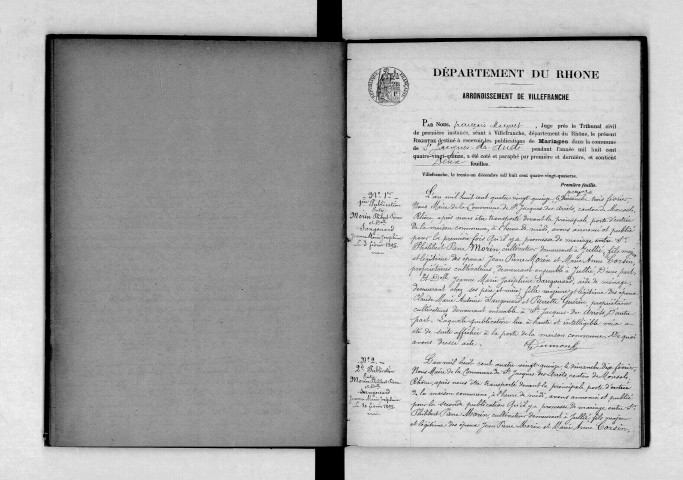 DÉPARTEMENT DU RHONE
ARRONDISSEMENT DE VILLEFRANCHE
PAR NOUS, françois , Juge près le Tribunal civil
de première instance, séant à Villefranche, département du Rhône, le présent
REGISTRE destiné à recevoir les publications de Mariages dans la commune
de St Jacques des Arrêts pendant l'année mil huit cent
quatre-vingt-quinze, a été coté et paraphé par première et dernière, et contient
Deux feuilles.
Villefranche, le trente-un décembre mil huit cent quatre-vingt-quatorze.
Première feuille.
N° 1er
1re Publication
Entre
Morin Philibert Pierre
et Delle
Sangouard
Jeanne Marie Joséphine
Le 3 février 1895.
L'an mil huit cent quatre vingt quinze, le Dimanche trois février,
Nous Maire de la Commune de St Jacques des Arrêts, canton de Monsols,
Rhône, après nous être transporté devant la principale porte d'entrée
de la maison commune, à l'heure de midi, avons annoncé et publié
pour la première fois qu'il y a promesse de mariage entre Sr
Philibert Pierre Morin, cultivateur demeurant à Jullié, fils majeur
et légitime des époux Jean Pierre Morin et Marie Anne Corsin,
propriétaires cultivateurs, demeurant ensemble à Jullié, D'une part,
Et Delle Jeanne Marie Joséphine Sangouard, aide de ménage,
demeurant chez ses père et mère, fille majeure et légitime des époux
Claude Marie Antoine Sangouard et Pierrette Guérin propriétaires
cultivateurs demeurant ensemble à St Jacques des Arrêts D'autre
part. Laquelle publication lue à haute et intelligible voix a
été de suite affichée à la porte de la maison commune. De quoi
avons dressé acte.
N° 2.
2e Publication
Entre
Morin Philibert Pierre
et Delle
Sangouard
Jeanne Marie Joséphine
Le 10 février 1895.
L'an mil huit cent quatre vingt-quinze, le dimanche dix février,
Nous Maire de la Commune de St Jacques des Arrêts, canton de Monsols,
Rhône, après nous être transporté devant la principale porte d'entrée
de la maison commune, à l'heure de midi, avons annoncé et publié
pour la seconde publication qu'il y a promesse de mariage entre Sr
Philibert Pierre Morin, cultivateur demeurant à Jullié, fils majeur
et légitime des époux Jean Pierre Morin et Marie Anne Corsin,